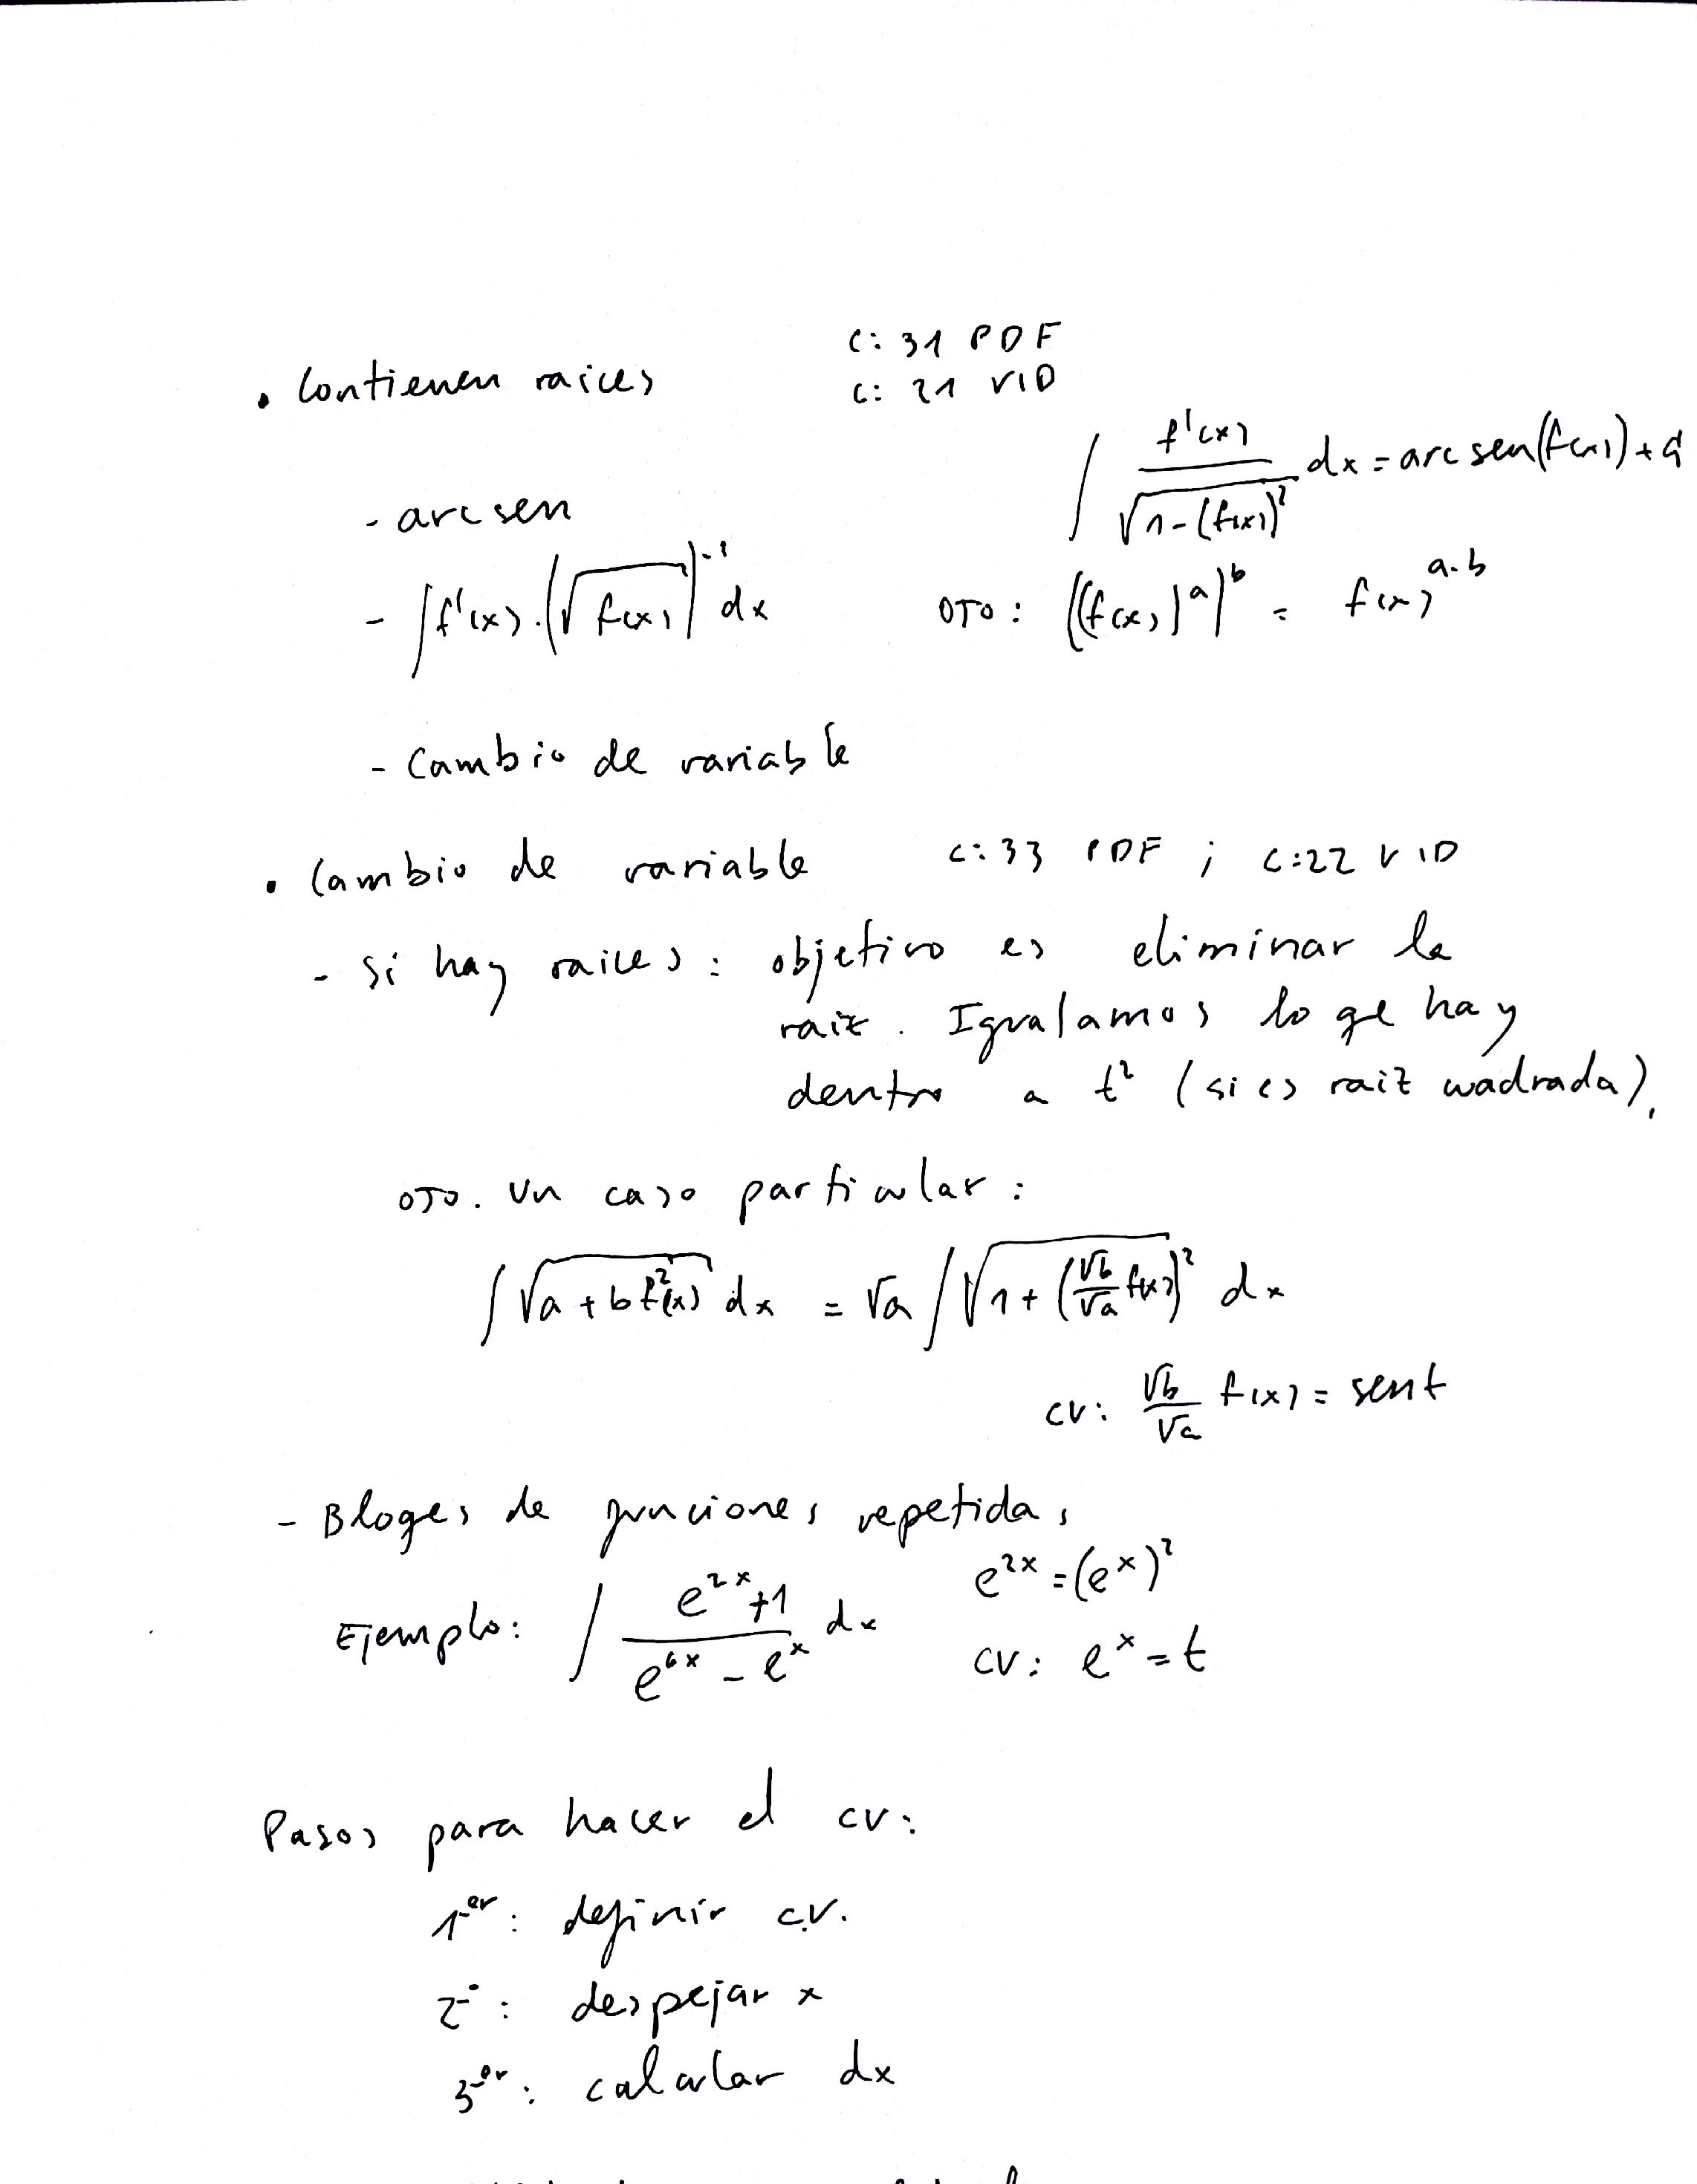 C: 31 PDF
• Contienen raices C: 21 VID
- arcsen ∫ f'(x) / √(1-(f(x))²) dx = arcsen(f(x)) + C
- ∫ f'(x) · (√f(x))⁻¹ dx OJO: ((f(x))ᵃ)ᵇ = f(x)ᵃ·ᵇ
- Cambio de variable
• Cambio de variable C: 33 PDF ; C: 22 VID
- Si hay raices: objetivo es eliminar la
raiz. Igualamos lo qe hay
dentro a t² (si es raiz cuadrada).
OJO. Un caso particular:
∫ √(a + b f²(x)) dx = √a ∫ √(1 + (√b/√a f(x))²) dx
CV: √b/√a f(x) = sent
- Bloqes de funciones repetidas
e²ˣ = (eˣ)²
Ejemplo: ∫ (e²ˣ+1) / (e⁶ˣ - eˣ) dx
CV: eˣ = t
Pasos para hacer el CV:
1er: definir C.V.
2º: despejar x
3er: calcular dx